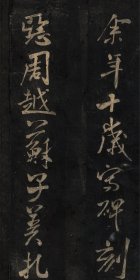 余年十歲寫碑刻
學周越蘇子美札